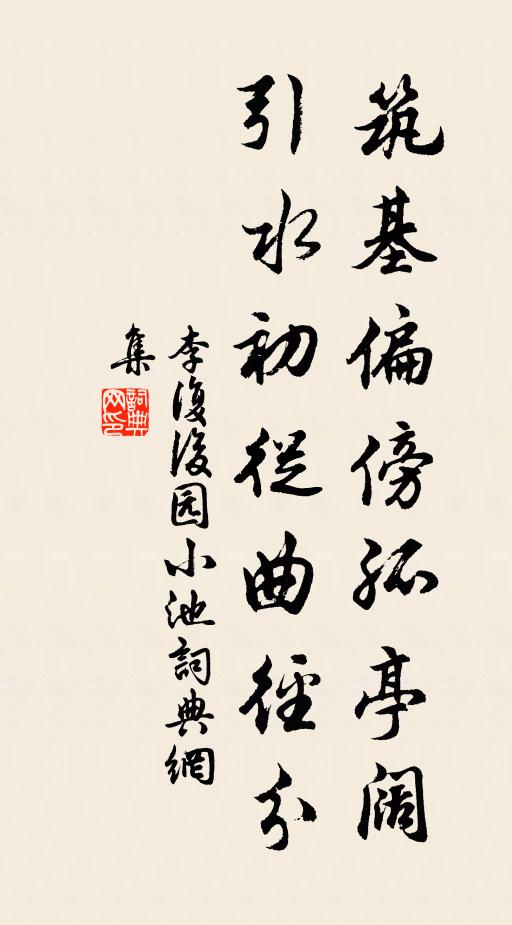 筑基偏傍孤亭阔
引水初從曲徑分
李復後园小池詞典網
集
詞典网印